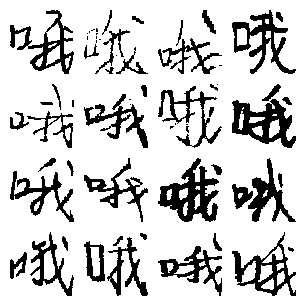 哦哦哦哦
哦哦哦哦
哦哦哦哦
哦哦哦哦